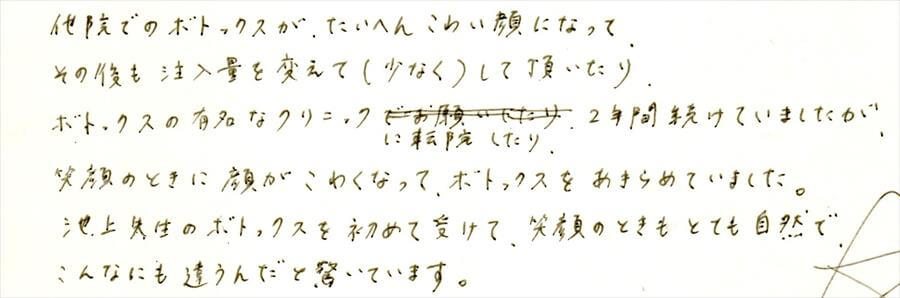 他院でのボトックスが、たいへんこわい顔になって、
その後も注入量を変えて(少なく)して頂いたり、
ボトックスの有名なクリニックでお願いしたり、2年間続けていましたが、
に転院したり、
笑顔のときに顔がこわくなって、ボトックスをあきらめていました。
池上先生のボトックスを初めて受けて、笑顔のときもとても自然で、
こんなにも違うんだと驚いています。